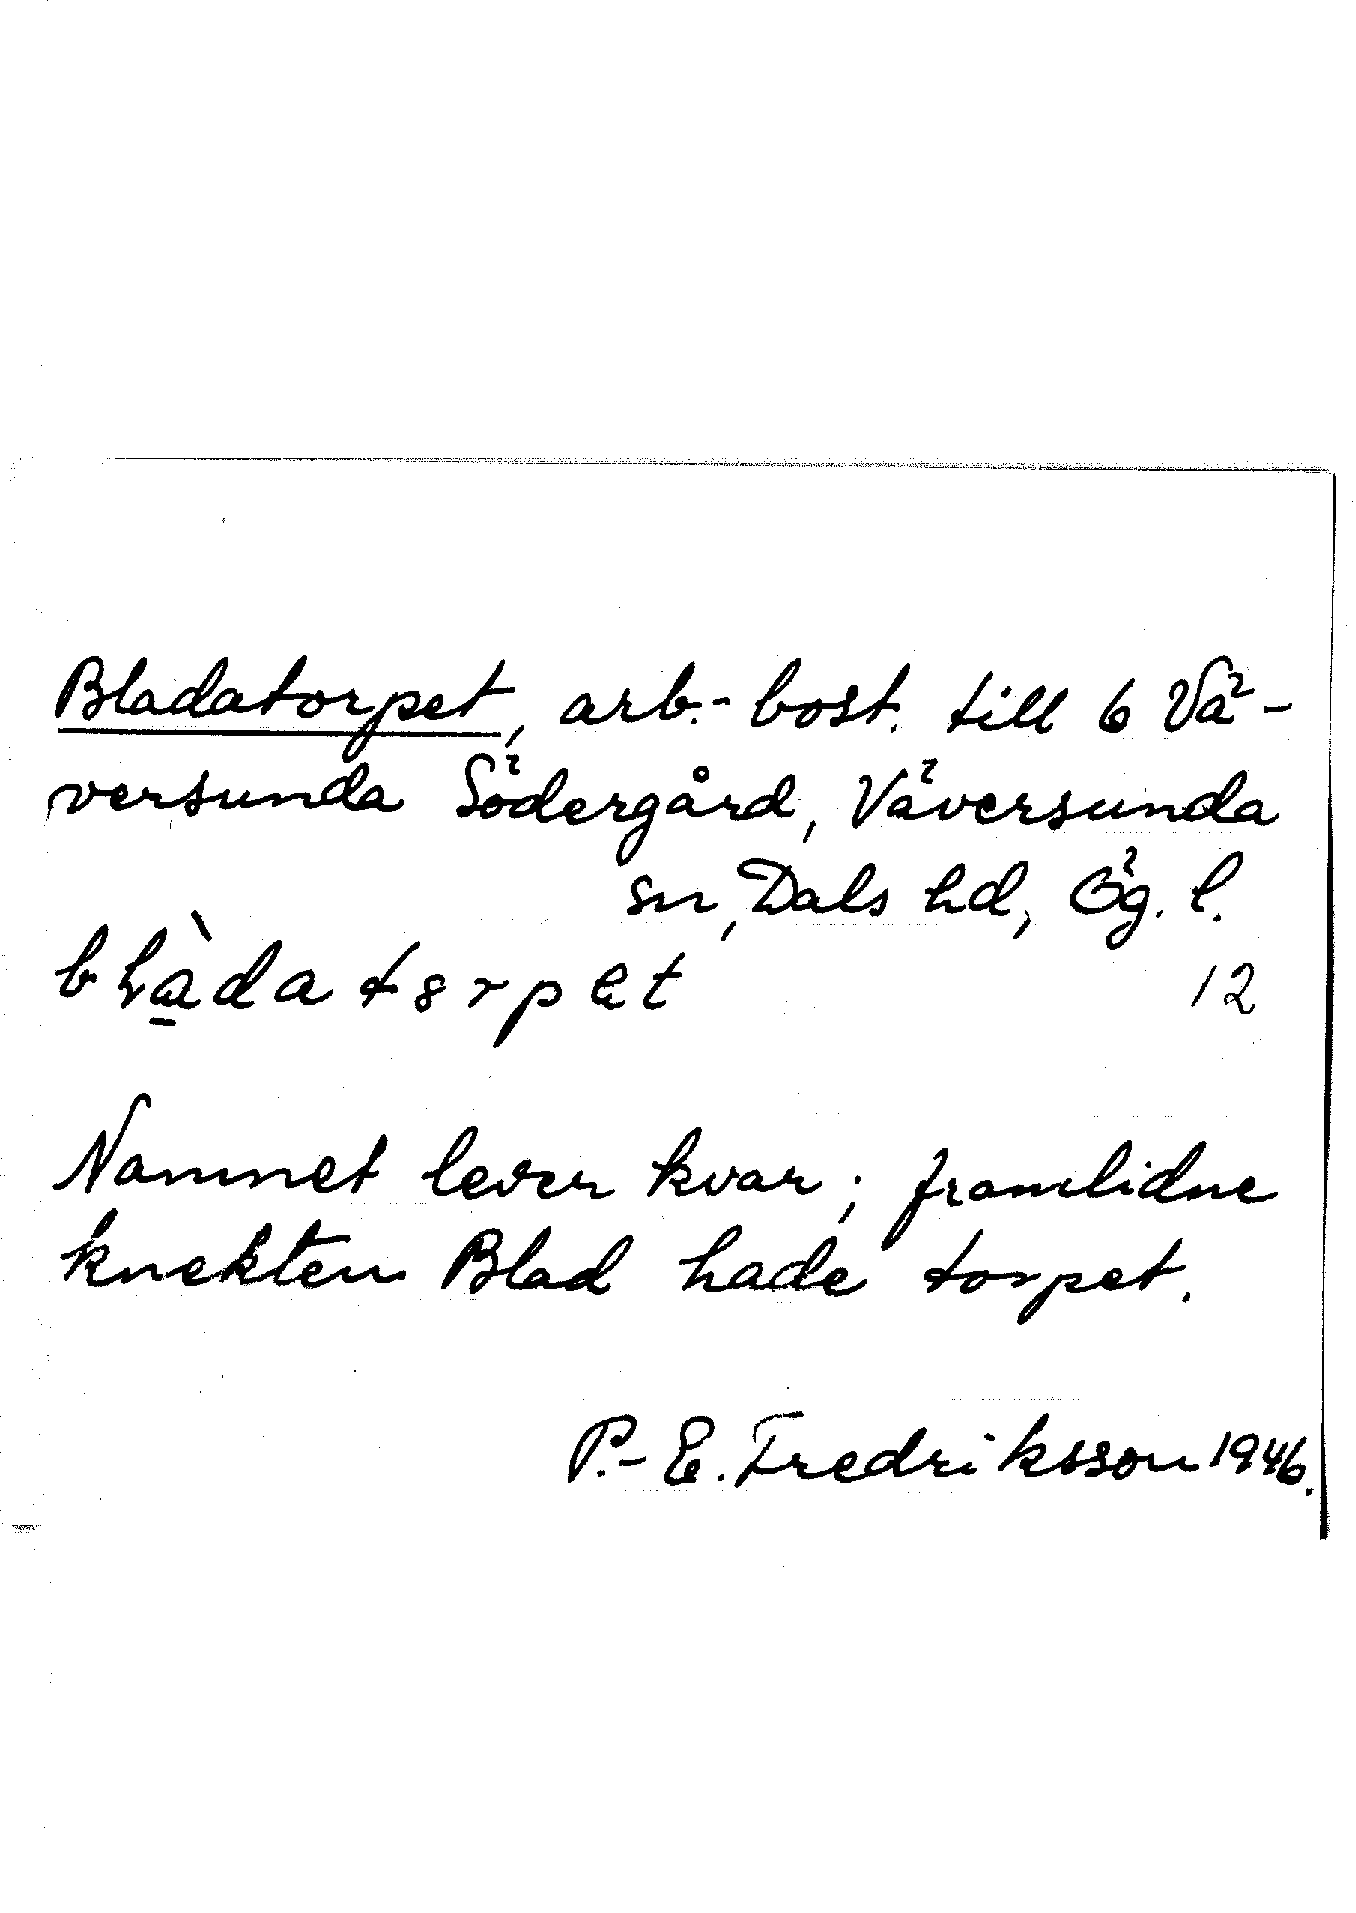 Bladatorpet, arb.-bost. till 6 Vä-
versunda Södergård, Väversunda
sn, Dals hd, Ög. l.
12
Namnet lever kvar; framlidne
knekten Blad hade torpet.
P.-E. Fredriksson 1946.